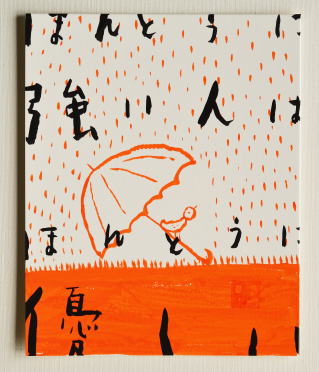 ほんとうに
強い人は
ほんとうに
優しい